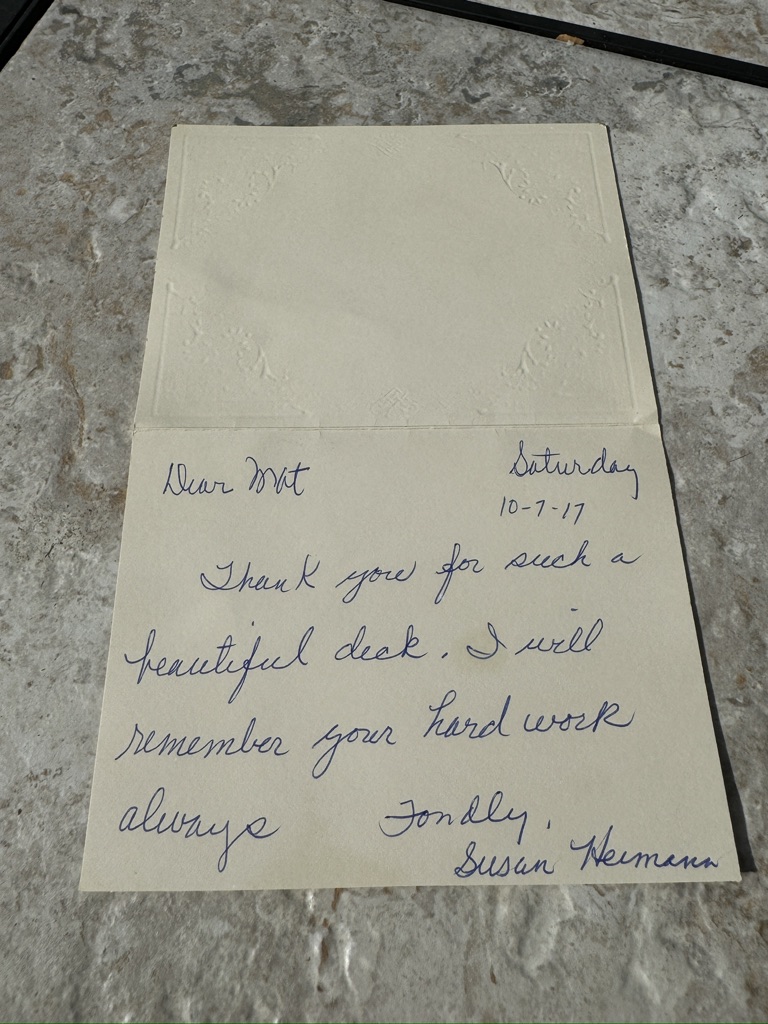 Dear Mat
Saturday
10-7-17
Thank you for such a
beautiful deck. I will
remember your hard work
always
Fondly,
Susan Heimann